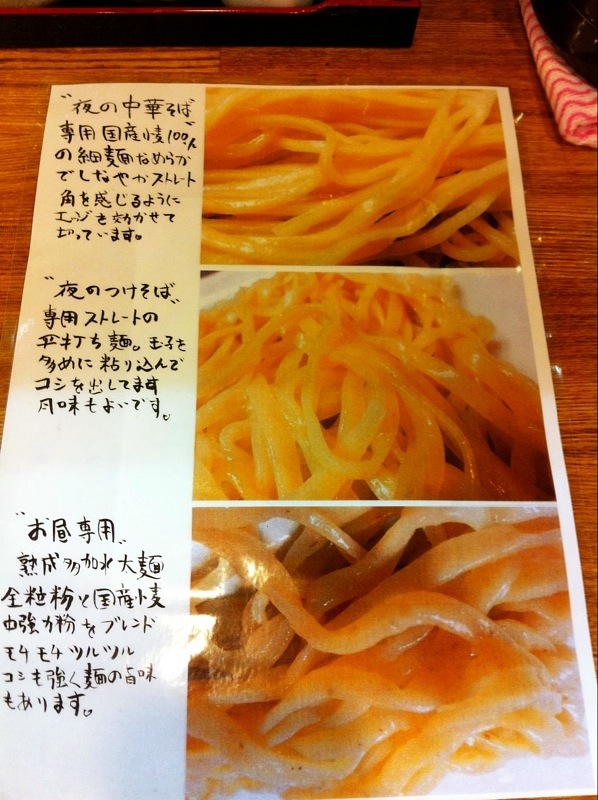 "夜の中華そば"
専用国産小麦100%
の細麺なめらか
でしなやかストレート
角を感じるように
エッジを効かせて
切っています。
"夜のつけそば"
専用ストレートの
平打ち麺。玉子を
多めに粘り込んで
コシを出してます
風味もよいです。
"お昼専用"
熟成多加水太麺
全粒粉と国産小麦
中強力粉をブレンド
モチモチツルツル
コシも強く麺の旨味
もあります。